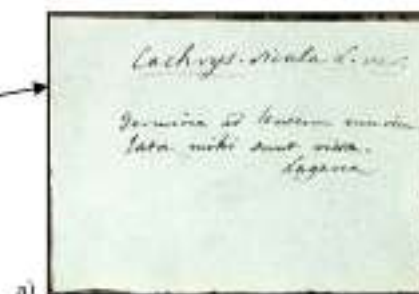 Cachrys sicula L.
Semina ad
lata mihi sunt visa.
Lagasca
a)